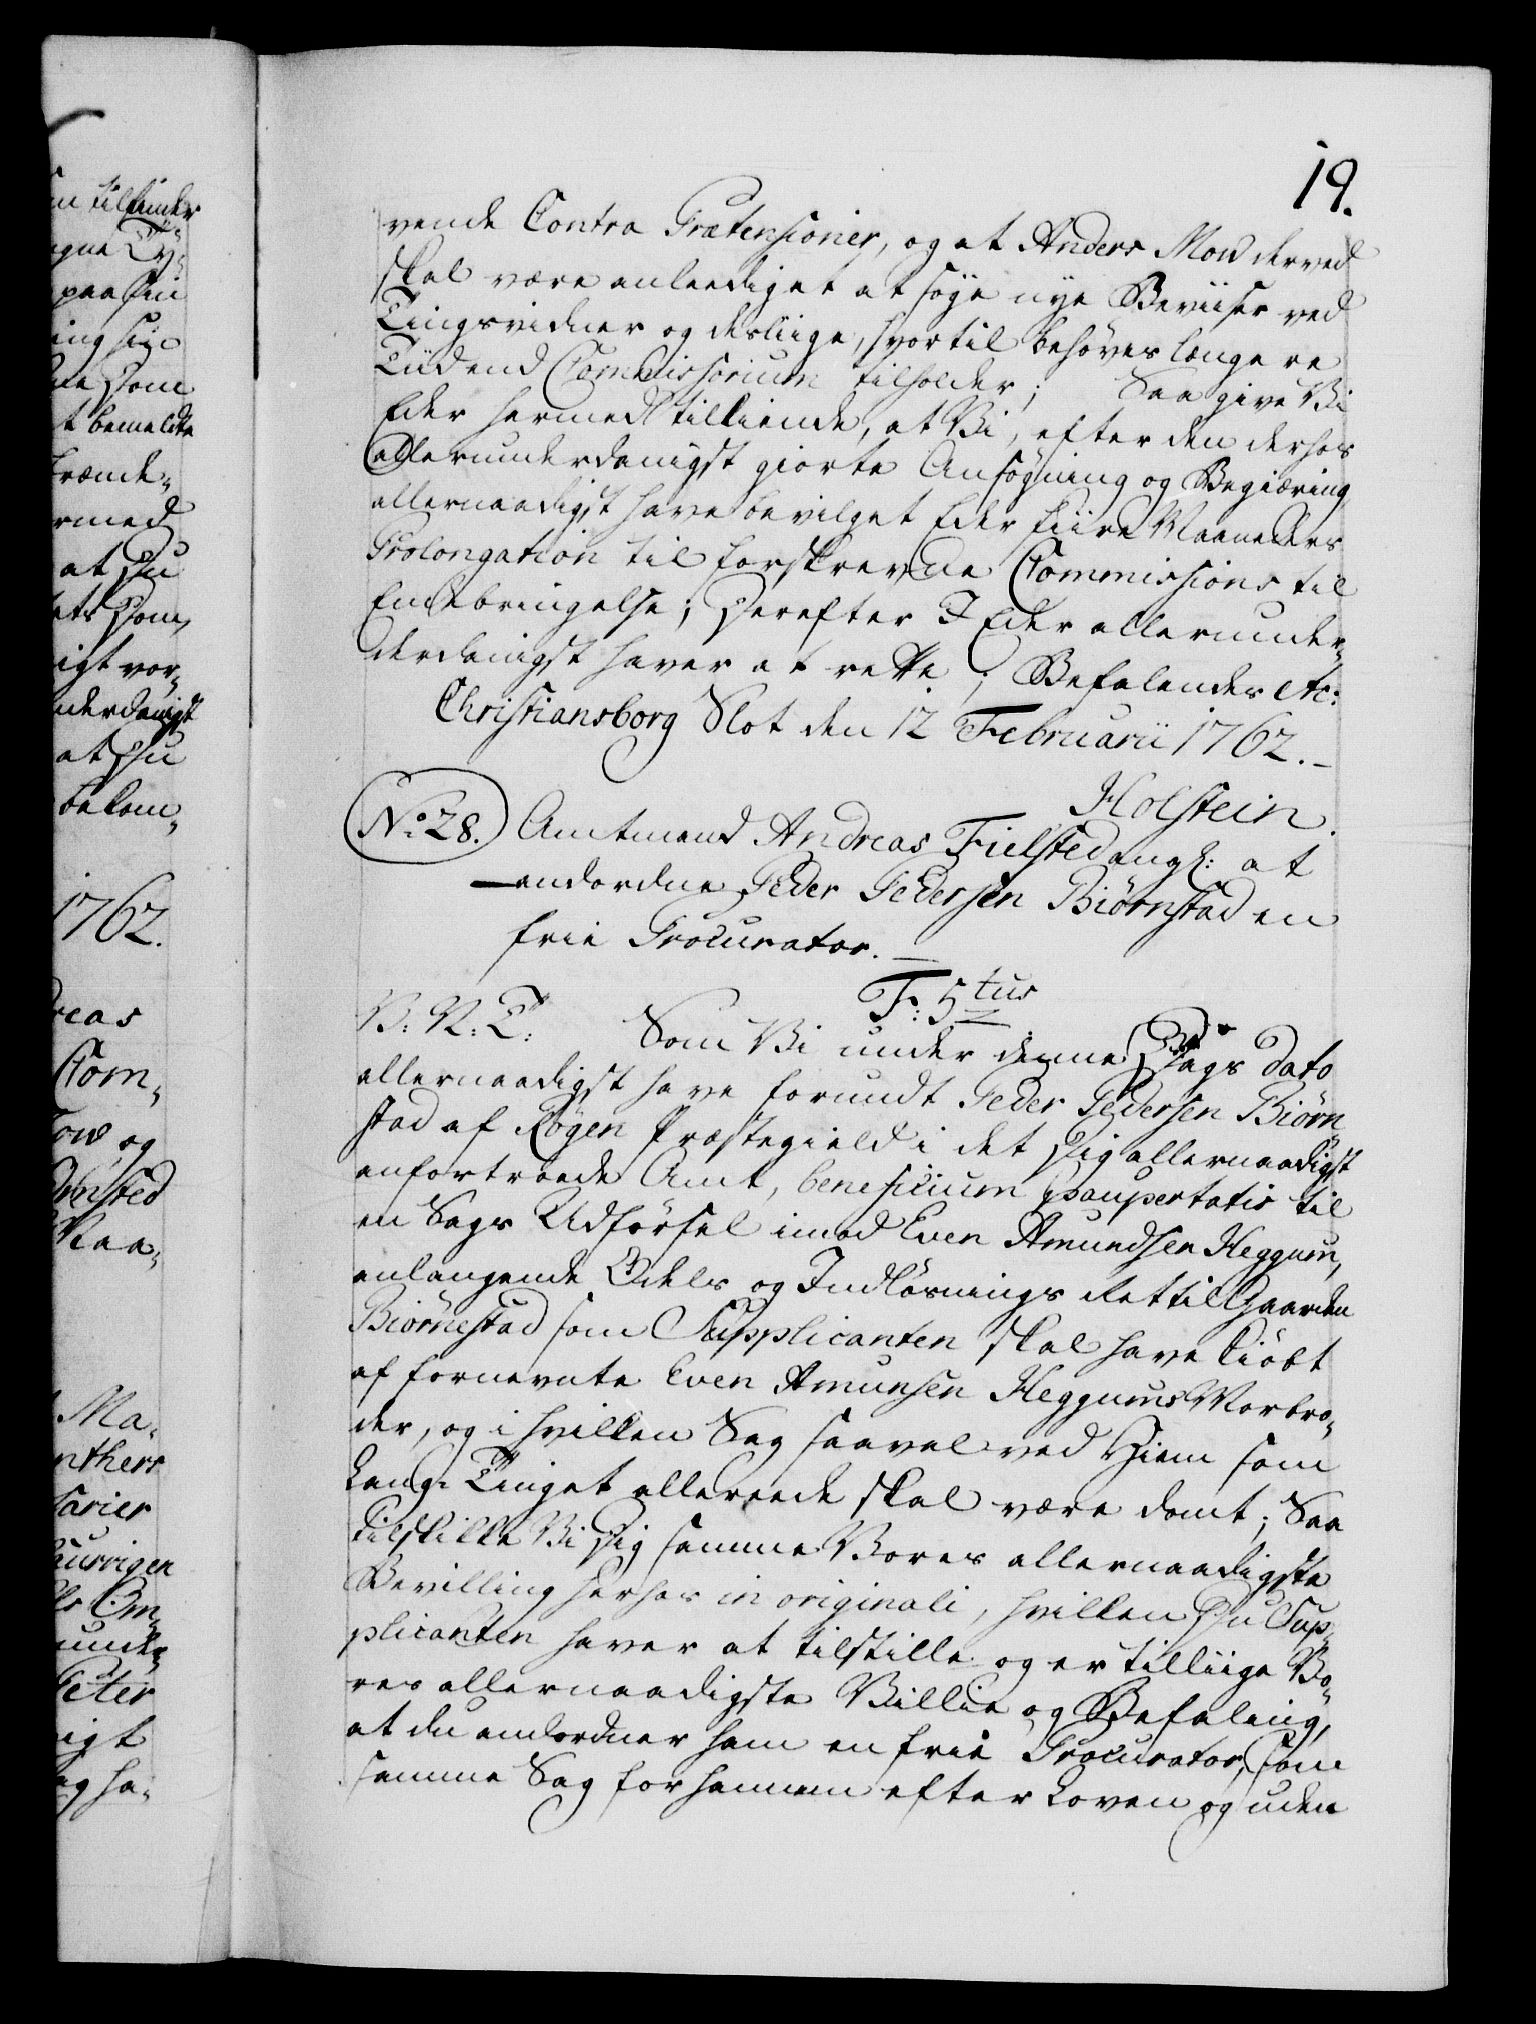 19.
vende Contra Prætensioner, og at Anders Mow derved
skal være anleediget at søge nye Beviiser ved
Tingsvidner og desliige, hvortil behøves længere
Tiid end Commissorium tilholder; Saa give Vi
Eder hermed tilkiende, at Vi, efter den derhos
allerunderdanigst giorte Ansøgning og Begiæring,
allernaadigst have bevilget Eder fiire Maaneders
Prolongation til forskrevne Commissions til
Endebringelse; Derefter I Eder allerunder-
derdanigst haver at rette; Befalendes etc:
Christiansborg Slot den 12 Februarii 1762.–
Holstein.
No: 28. Amtmand Andreas Fielsted ang: at
anordne Peder Pedersen Biørnstad en
frie Procurator. –
F: 5tus
V: N: T: Som Vi under denne Dags dato
allernaadigst have forundt Peder Pedersen Biørn-
stad af Røgen Præstegield i det Dig allernaadigst
anfortroede Amt, beneficium paupertatis til
en Sags Udførsel imod Even Amundsen Heggum,
anlangende Odels og Indløsnings Ret til Gaarden
Biørnestad som Supplicanten skal have kiøbt
af fornevnte Even Amunsen Heggums Morbro-
der, og i hvilken Sag saavel ved Hiem som
Laug-Tinget allereede skal være dømt; Saa
tilskikke Vi Dig samme Vores allernaadigste
Bevilling herhos in originali, hvilken Du Sup-
plicanten haver at tilstille og er tilliige Vo-
res allernaadigste Villie og Befaling,
at du anordner ham en frie Procurator, som
samme Sag for hannem efter Loven og uden